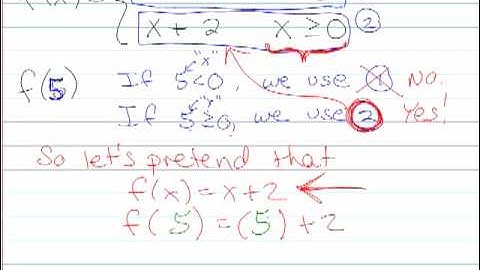 x + 2 x ≥ 0 ②
"x"
f(5) If 5 < 0, we use ① No.
"x"
If 5 ≥ 0, we use ② Yes!
So let's pretend that
f(x) = x + 2
f( 5 ) = (5) + 2